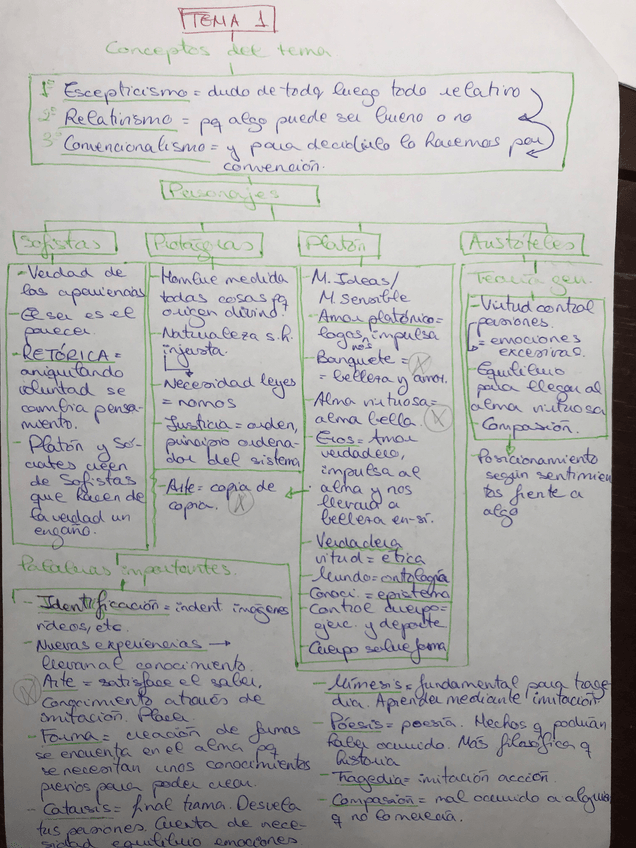 TEMA 1
Conceptos del tema
1º Escepticismo = dudo de todo, luego todo relativo
2º Relativismo = pq algo puede ser bueno o no
3º Convencionalismo = y para decidirlo lo hacemos por
convención.
Personajes
Sofistas
- Verdad de
las apariencias
- El ser es el
parecer.
- RETÓRICA =
aniquilando
voluntad se
cambia pensa-
miento.
- Platón y Só-
crates creen
de Sofistas
que hacen de
la verdad un
engaño.
Protágoras
- Hombre medida
todas cosas pq
origen divino.
- Naturaleza s.h.
injusta.
- Necesidad leyes
= nomos
- Justicia = orden,
principio ordena-
dor del sistema
- Arte = copia de
copia.
Platón
- M. Ideas/
M sensible
- Amor platónico =
logos, impulsa
nos
- Banquete =
= belleza y amor.
- Alma virtuosa =
alma bella.
- Eros = Amor
verdadero,
impulsa al
alma y nos
llevará a
belleza en-sí.
- Verdadera
virtud = ética
- Mundo = ontología
- Conoci. = epistema
- Control cuerpo-
ejerc. y deporte
- Cuerpo salve forma
Aristóteles
Teoría gen.
- Virtud control
pasiones.
= emociones
excesivas.
- Equilibrio
para llegar al
alma virtuosa
- Compasión.
- Posicionamiento
según sentimien
tos frente a
algo
Palabras importantes.
- Identificación = indent imágenes
videos, etc.
- Nuevas experiencias →
llevan al conocimiento.
- Arte = satisface el saber.
Conocimiento através de
imitación. Placer
- Forma = creación de formas
se encuenta en el alma pq
se necesitan unos conocimientos
previos para poder crear.
- Catarsis = final trama. Desvela
tus pasiones. Cuenta de nece-
sidad equilibrio emociones
- Mímesis = fundamental para trage-
dia. Aprender mediante imitación
- Póesis = poesía. Hechos q podrían
haber ocurrido. Más filosófica q
historia
- Tragedia = imitación acción.
- Compasión = mal ocurrido a alguien
q no lo merecía.